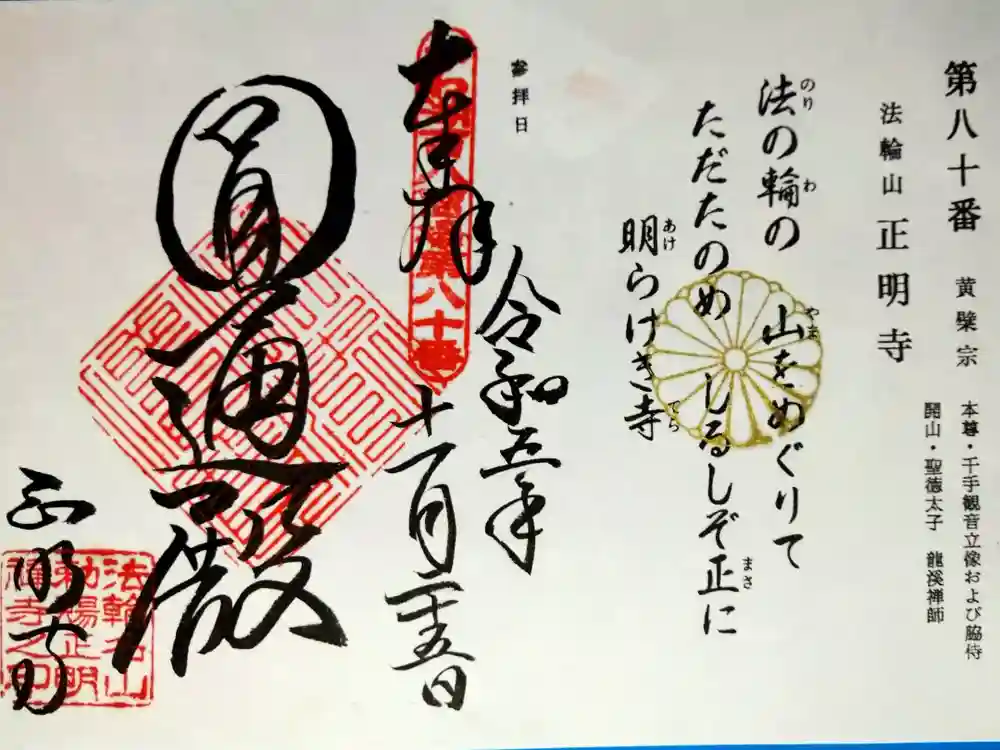 第八十番 黄檗宗 本尊・千手観音立像および脇侍
開山・聖徳太子 龍溪禅師
法輪山 正明寺
法の輪の 山をめぐりて
のり わ やま
ただたのめ しるしぞ正に
まさ
明らけき寺
あけ てら
参拝日
奉拝
令和五年
十一月二十五日
圓通殿
正明寺
法輪山
勅賜正明
禅寺之印